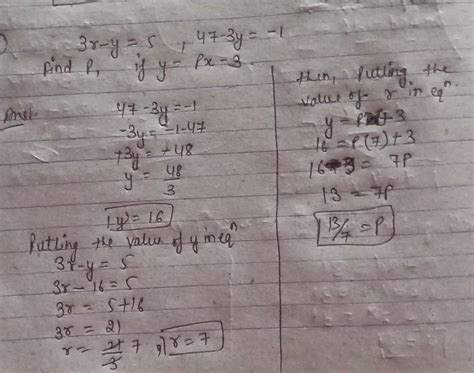 3x-y = 5 , 47-3y = -1
Find P, if y = Px-3.
Ans!
47-3y = -1
-3y = -1-47
+3y = +48
y = 48/3
y = 16
Putting the value of y in eqⁿ
3x-y = 5
3x-16 = 5
3x = 5+16
3x = 21
x = 21/3 7 , x = 7
then, Putting the
value of x in eqⁿ
y = P +3
16 = P(7)+3
16-3 = 7P
13 = 7P
13/7 = P